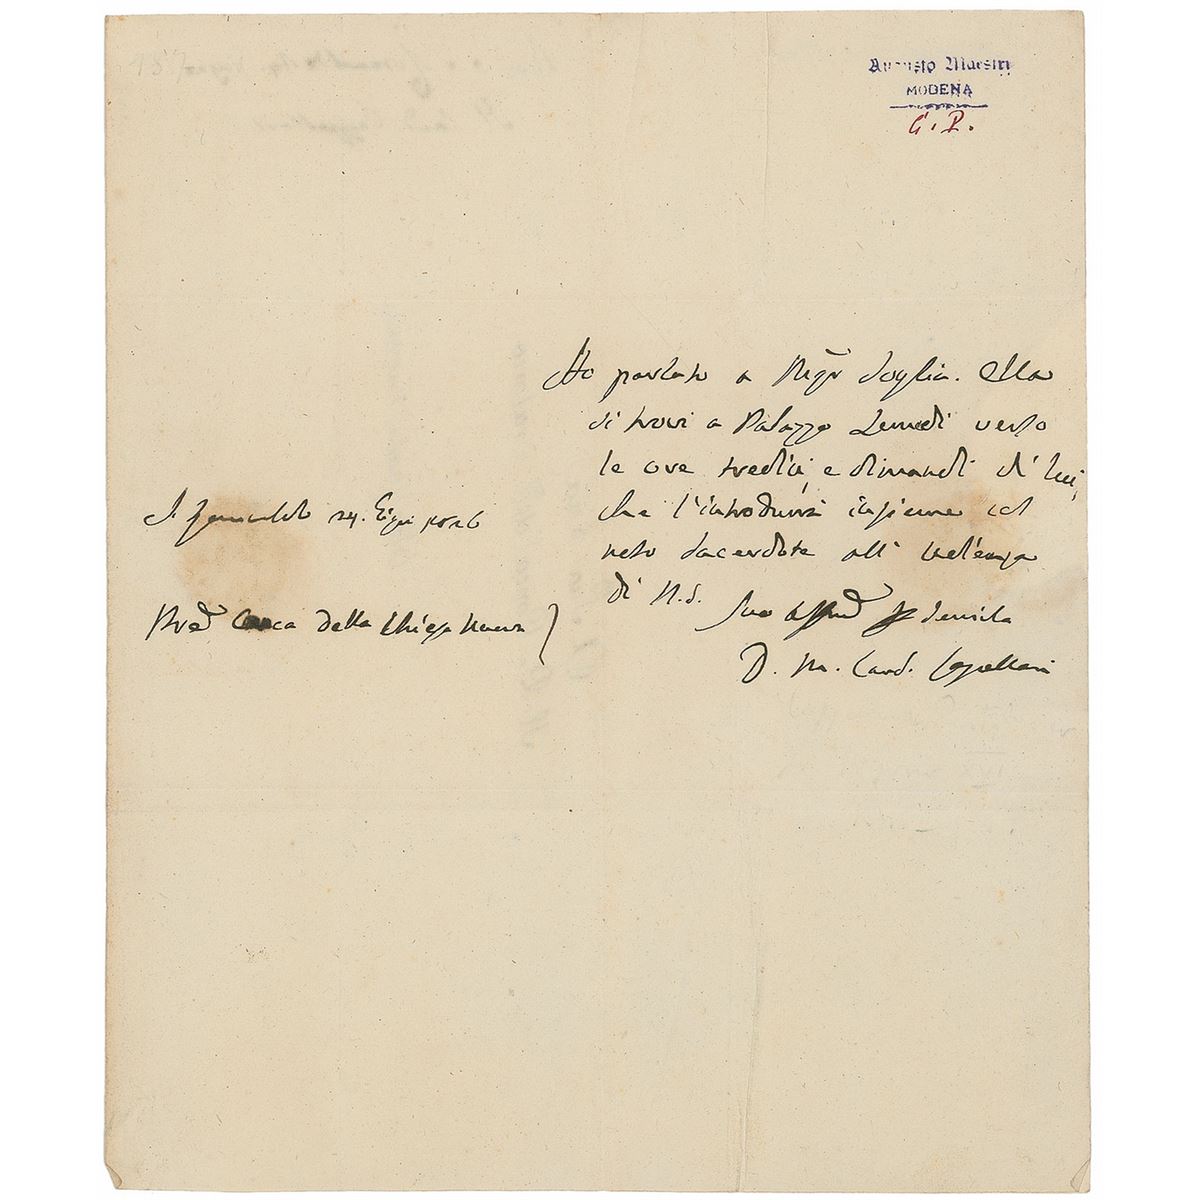 Augusto Maestri
MODENA
G. P.
Ho parlato a Migr Soglia. Ella
si trovi a Palazzo Lunedi verso
le ore tredici, e dimandi di lui,
che l'introdurrà insieme col
noto Sacerdote all' Udienza
di N. S.
Suo Servitore
D. M. Card. Cappellari
S. Romualdo 24. 1826
della Chiesa Nuova